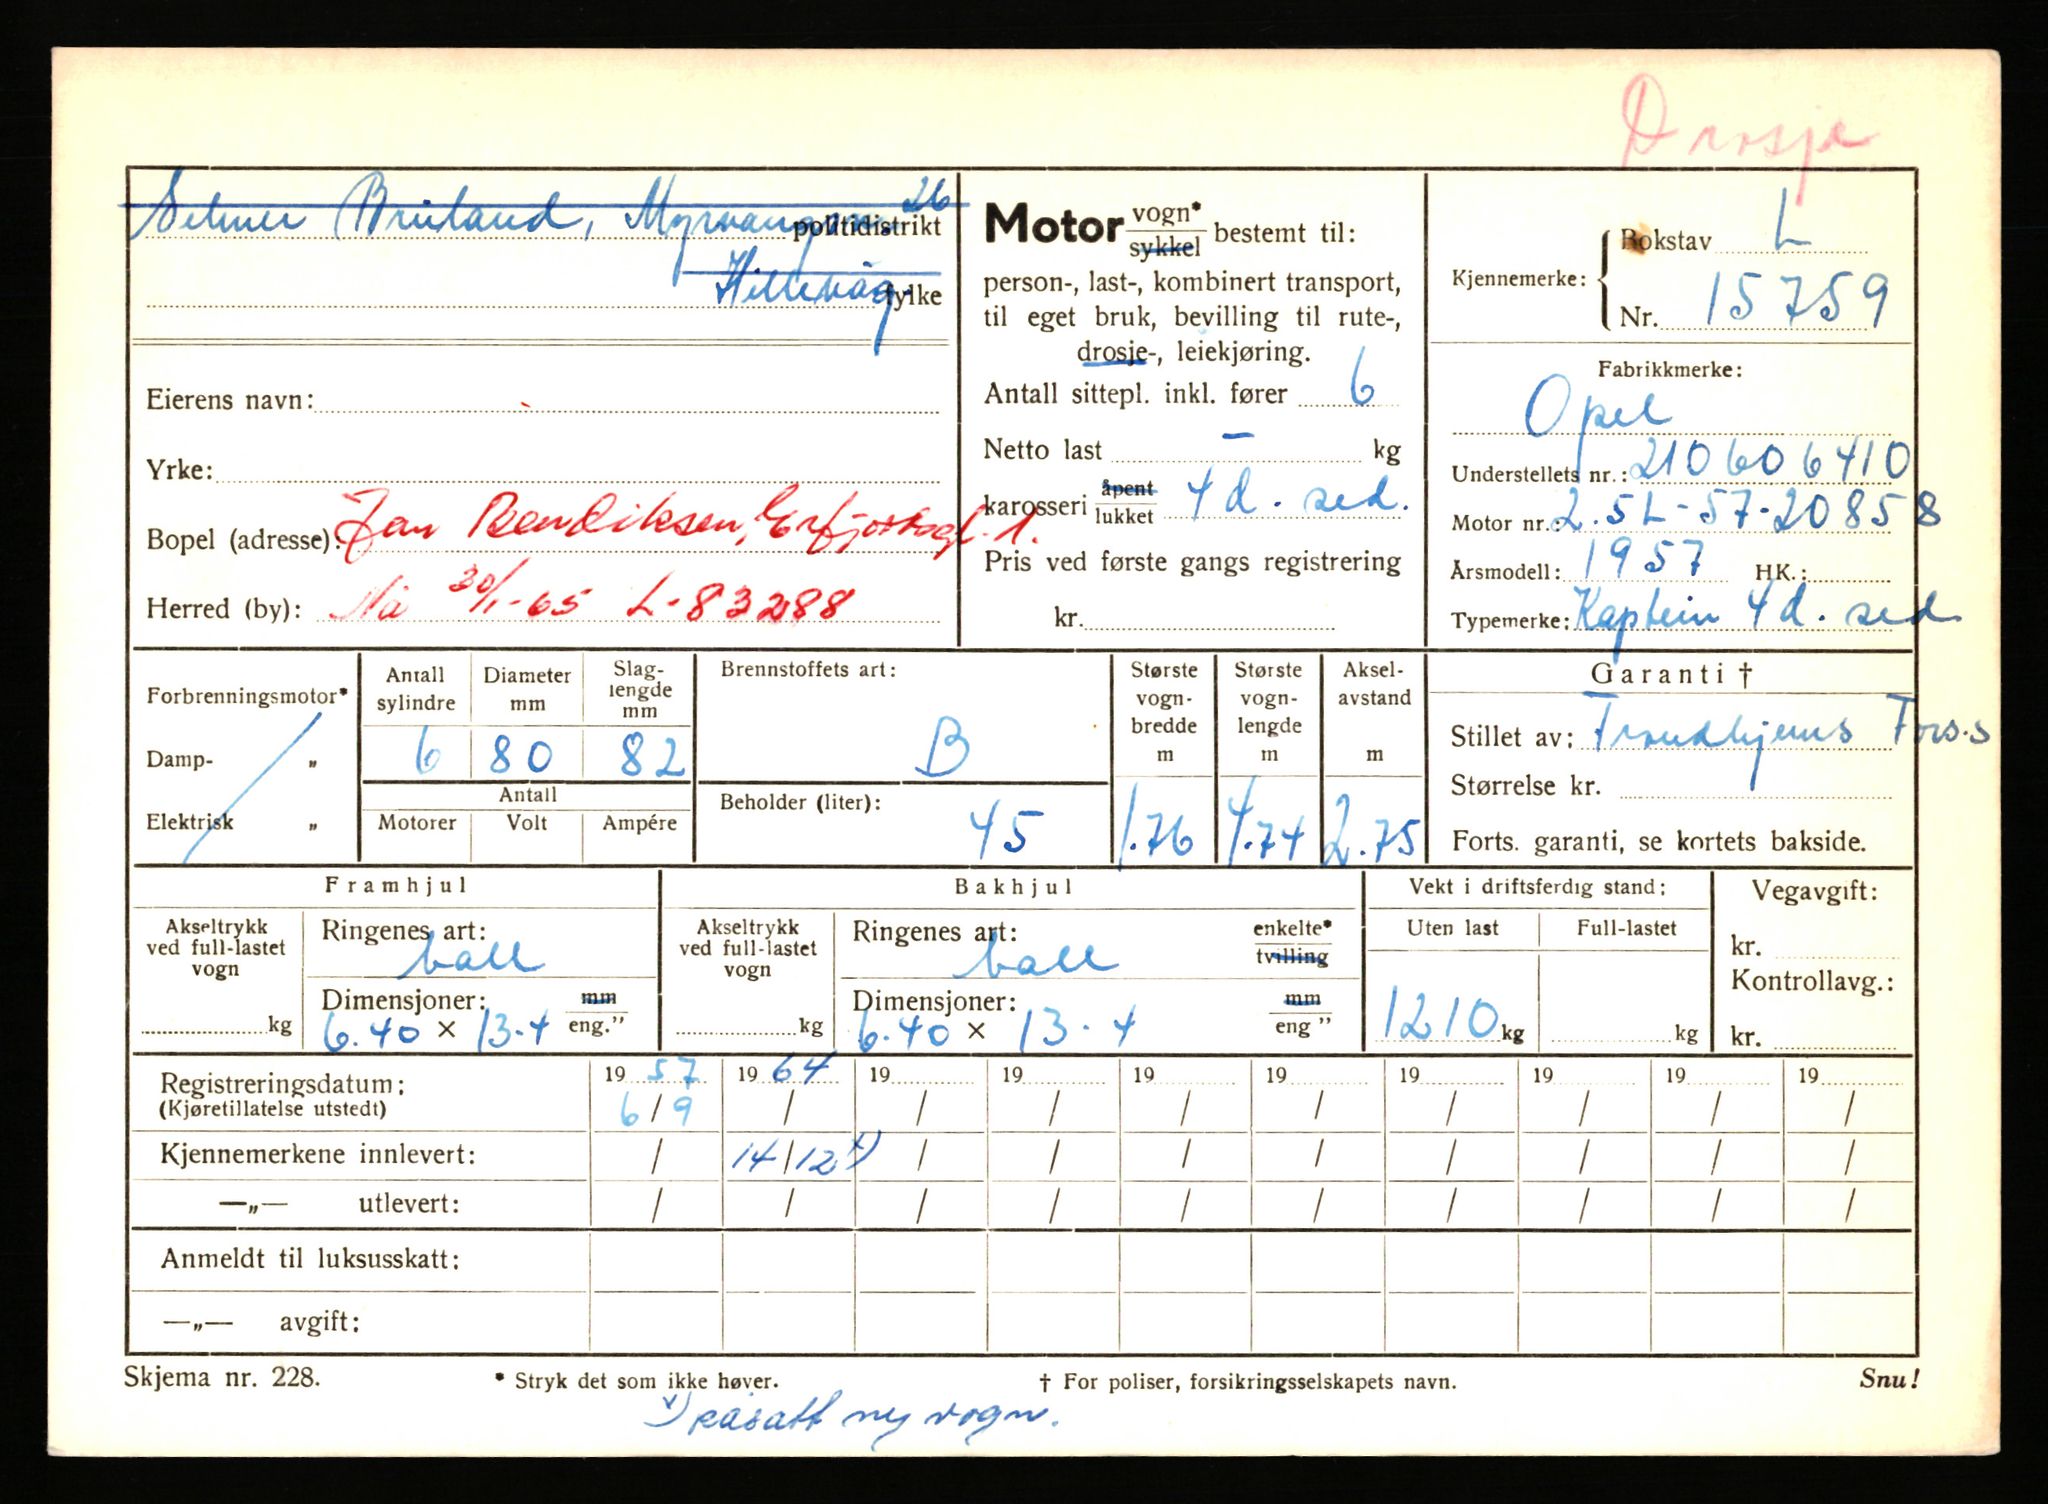 Drosje
Selmer Bruland, Myrvangen 26
politidistrikt
Hillevåg
fylke
Eierens navn:
Yrke:
Bopel (adresse): Jan Bendiksen, Erfjordsgt. 1.
Herred (by): Nå 30/1-65 L-83288
Motor vogn* sykkel bestemt til:
person-, last-, kombinert transport,
til eget bruk, bevilling til rute-,
drosje-, leiekjøring.
Antall sittepl. inkl. fører 6
Netto last — kg
karosseri åpent lukket 4 d. sed.
Pris ved første gangs registrering
kr.
Kjennemerke: Bokstav L
Nr. 15759
Fabrikkmerke:
Opel
Understellets nr.: 210606410
Motor nr.: 2.5L-57-20858
Årsmodell: 1957 HK.:
Typemerke: Kaptein 4 d. sed
Forbrenningsmotor*
Damp- „
Elektrisk „
Antall sylindre 6
Diameter mm 80
Slaglengde mm 82
Antall
Motorer Volt Ampére
Brennstoffets art:
B
Beholder (liter):
45
Største vognbredde m 1.76
Største vognlengde m 4.74
Akselavstand m 2.75
Garanti †
Stillet av: Trondhjems Fors.s
Størrelse kr.
Forts. garanti, se kortets bakside.
Framhjul
Akseltrykk ved full-lastet vogn
kg
Ringenes art:
ball
Dimensjoner: mm eng."
6.40 × 13.4
Bakhjul
Akseltrykk ved full-lastet vogn
kg
Ringenes art: enkelte* tvilling
ball
Dimensjoner: mm eng "
6.40 × 13.4
Vekt i driftsferdig stand:
Uten last Full-lastet
1210 kg kg
Vegavgift:
kr.
Kontrollavg.:
kr.
Registreringsdatum: 19 57 19 64 19 19 19 19 19 19 19 19
(Kjøretillatelse utstedt) 6/9 / / / / / / / / /
Kjennemerkene innlevert: / 14/12 x) / / / / / / / /
—„— utlevert: / / / / / / / / / /
Anmeldt til luksusskatt:
—„— avgift:
Skjema nr. 228. * Stryk det som ikke høver. † For poliser, forsikringsselskapets navn. Snu!
x) påsatt ny vogn.